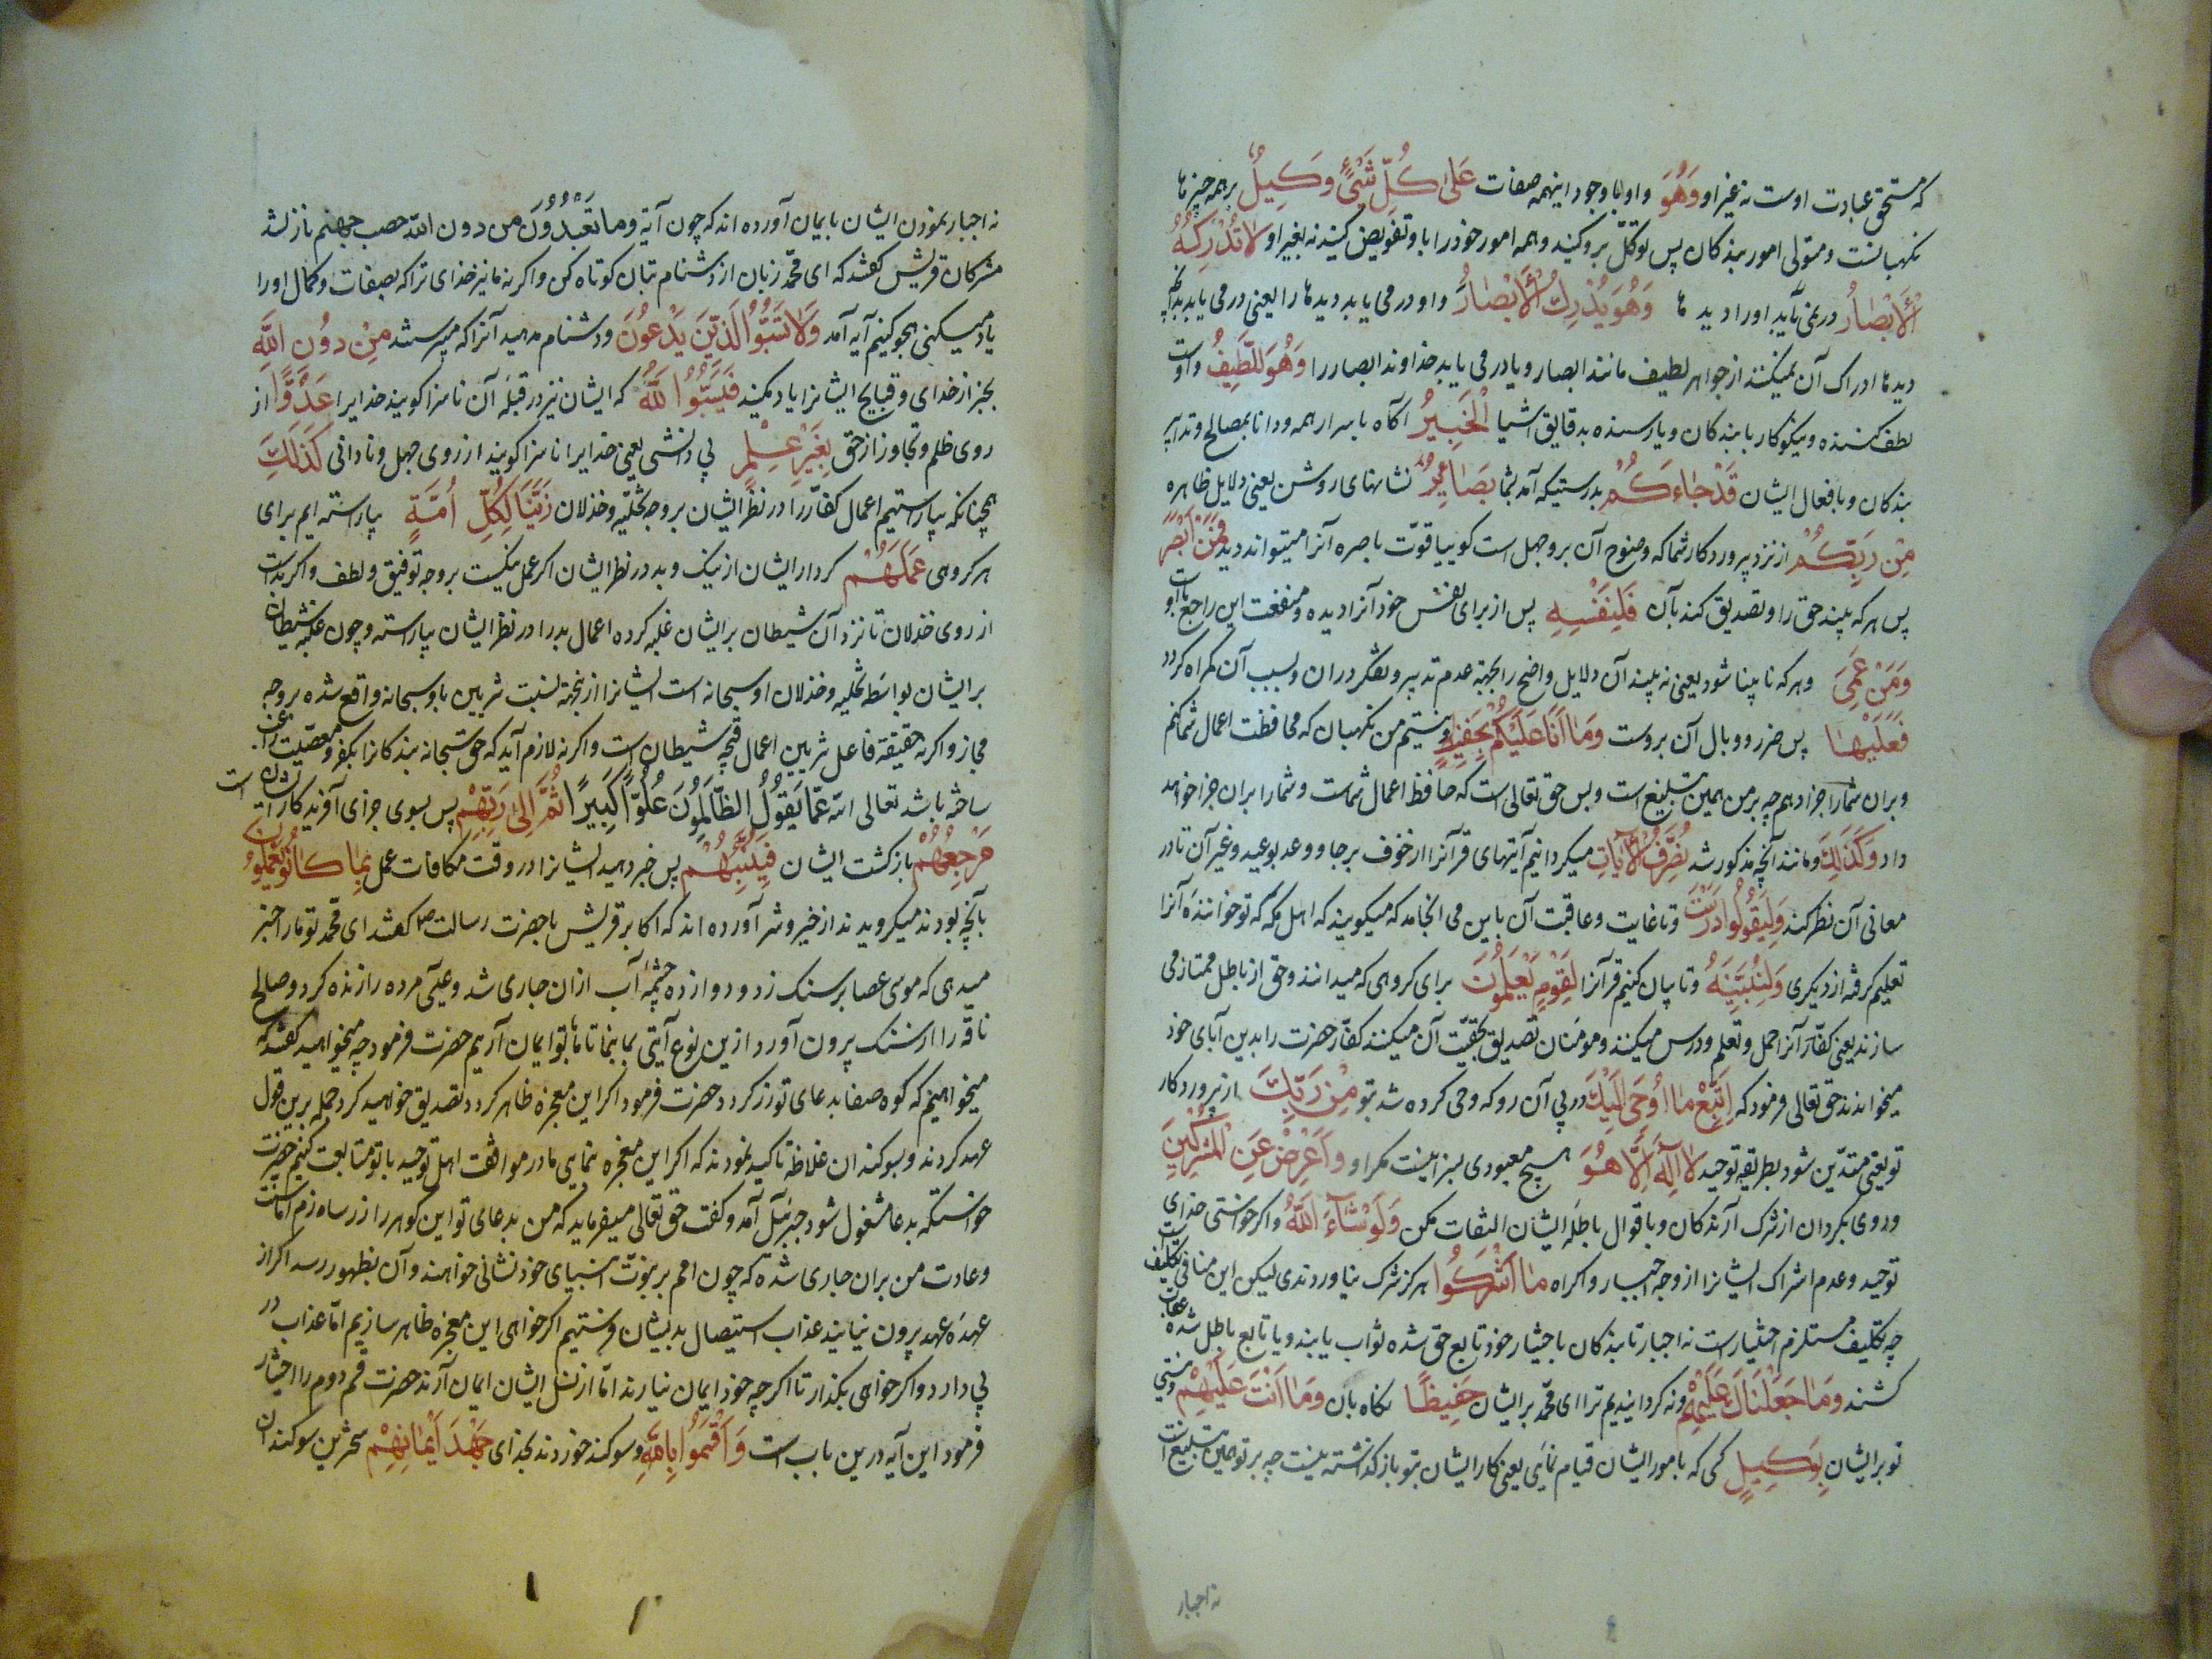 که مستحق عبادت اوست نه غیر او وَهُوَ و او با وجود اینهمه صفات عَلٰی کُلِّ شَیْءٍ وَکِیلٌ بر همه چیزها
نکهبانست و متولی امور بندکان پس توکّل برو کنید و همه امور خود را باو تفویض کنید نه بغیر او لَا تُدْرِکُهُ
الْأَبْصَارُ در نمی‌یابد او را دیدها وَهُوَ یُدْرِكُ الْأَبْصَارَ و او درمی یابد دیدها را یعنی درمی یابد
دیدها ادراک آن نمیکنند از جواهر لطیف مانند ابصار و یا درمی یابد خداوند ابصار را وَهُوَ اللَّطِیفُ و اوست
لطف کننده و نیکوکار با بندکان و یا رسنده بدقایق اشیا الْخَبِیرُ آکاه باسرار همه و دانا بمصالح و تدابیر
بندکان و بافعال ایشان قَدْ جَاءَکُمْ بدرستیکه آمد بشما بَصَائِرُ نشانهای روشن یعنی دلایل ظاهره
مِنْ رَبِّکُمْ از نزد پروردکار شما که وضوح آن بر وجهی است کوییا قوّت باصره آنرا میتواند دید فَمَنْ أَبْصَرَ
پس هر که بیند حق را و تصدیق کند بآن فَلِنَفْسِهِ پس از برای نفس خود آنرا دیده و منفعت این راجع باو
وَمَنْ عَمِیَ و هر که نابینا شود یعنی نه بیند آن دلایل واضح را بجهة عدم تدبیر و تفکر در ان و بسبب آن کمراه کردد
فَعَلَیْهَا پس ضرر و وبال آن بروست وَمَا أَنَا عَلَیْکُمْ بِحَفِیظٍ و نیستم من نکهبان که محافظت اعمال شما کنم
و بران شما را جزا دهم چه بر من همین تبلیغ است و بس حق تعالی است که حافظ اعمال شماست و شما را بران جزا خواهد
داد وَکَذَلِكَ و مانند آنچه مذکور شد نُصَرِّفُ الْآیَاتِ میکردانیم آیتهای قرآنرا از خوف برجا و وعد بوعید و غیر آن تا در
معانی آن نظر کنند وَلِیَقُولُوا دَرَسْتَ و تا غایت و عاقبت آن باین می انجامد که میکویند که اهل مکه که تو خوانندهٔ آنرا
تعلیم کرفته از دیکری وَلِنُبَیِّنَهُ و تا بیان کنیم قرآنرا لِقَوْمٍ یَعْلَمُونَ برای کروهی که میدانند و حق از باطل ممتاز می
سازند یعنی کفّار آنرا حمل و تعلم و درس میکنند و مومنان تصدیق بحقیّت آن میکنند کفّار حضرت را بدین آبای خود
میخواندند حق تعالی فرمود که اِتَّبِعْ مَا أُوحِیَ إِلَیْكَ در پی آن رو که وحی کرده شد بتو مِنْ رَبِّكَ از پروردکار
تو یعنی متدیّن شو بطریقه توحید لَا إِلٰهَ إِلَّا هُوَ هیچ معبودی بسزا نیست مکر او وَأَعْرِضْ عَنِ الْمُشْرِکِینَ
و روی بکردان از شرک آرندکان و باقوال باطله ایشان التفات مکن وَلَوْ شَاءَ اللَّهُ و اکر خواستی خدای
توحید و عدم اشراک ایشانرا از وجه اجبار و اکراه مَا أَشْرَکُوا هرکز شرک نیاوردندی لیکن این منافی تکلیف است
چه تکلیف مستلزم اختیارست نه اجبار تا بندکان باختیار خود تابع حق شده ثواب یابند و یا تابع باطل شده عقاب
کشند وَمَا جَعَلْنَاكَ عَلَیْهِمْ و نه کردانیدیم ترا ای محمّد بر ایشان حَفِیظًا نکاه بان وَمَا أَنْتَ عَلَیْهِمْ و نیستی
تو بر ایشان بِوَکِیلٍ کسی که بامور ایشان قیام نمایی یعنی کار ایشان بتو باز کذاشته نیست چه بر تو همین تبلیغ است
نه اجبار
نه اجبار نمودن ایشان بایمان آورده اند که چون آیة وما تَعْبُدُونَ من دون الله حصب جهنم نازلشد
مشرکان قریش کفتند که ای محمّد زبان از دشنام بتان کوتاه کن و اکر نه ما نیز خدای ترا که بصفات و کمال او را
یاد میکنی هجو کنیم آیه آمد وَلَا تَسُبُّوا الَّذِینَ یَدْعُونَ و دشنام مدهید آنرا که میپرستند مِنْ دُونِ اللَّهِ
بجز از خدای و قبایح ایشانرا یاد مکنید فَیَسُبُّوا اللَّهَ که ایشان نیز در قبلهٔ آن ناسزا کویند خدایرا عَدْوًا از
روی ظلم و تجاوز از حق بِغَیْرِ عِلْمٍ بی دانشی یعنی خدایرا ناسزا کویند از روی جهل و نادانی کَذَلِكَ
همچنانکه بیاراستیم اعمال کفّار را در نظر ایشان بر وجه تخلیه و خذلان زَیَّنَّا لِکُلِّ أُمَّةٍ بیاراسته ایم برای
هر کروهی عَمَلَهُمْ کردار ایشان از نیک و بد در نظر ایشان اکر عمل نیکست بر وجه توفیق و لطف و اکر بدست
از روی خذلان تا نزد آن شیطان بر ایشان غلبه کرده اعمال بد را در نظر ایشان بیاراسته و چون غلبه شیطان
بر ایشان بواسطه تخلیه و خذلان او سبحانه است ایشانرا ازینجهة نسبت تزیین باو سبحانه واقع شده بر وجه
مجاز و اکر نه حقیقة فاعل تزیین اعمال قبیحه شیطان است و اکر نه لازم آید که حق سبحانه بندکانرا بکفر و معصیت راغب
ساخته باشد تعالی الله عَمَّا یَقُولُ الظَّالِمُونَ عُلُوًّا کَبِیرًا ثُمَّ إِلٰی رَبِّهِمْ پس بسوی جزای آفریدکار ایشان است
مَرْجِعُهُمْ بازکشت ایشان فَیُنَبِّئُهُمْ پس خبر دهید ایشانرا در وقت مکافات عمل بِمَا کَانُوا یَعْمَلُونَ
بآنچه بودند میکرویدند از خیر و شر آورده اند که اکابر قریش باحضرت رسالت ص کفتند ای محمّد تو ما را خبر
میدهی که موسی عصا بر سنک زد و دوازده چشمهٔ آب ازان جاری شد و عیسی مرده را زنده کرد و صالح
ناقه را از سنک بیرون آورد ازین نوع آیتی بما بنما تا ما بتو ایمان آریم حضرت فرمود چه میخواهید کفتند که
میخواهیم که کوه صفا بدعای تو زر کردد حضرت فرمود اکر این معجزه ظاهر کردد تصدیق خواهید کرد جمله برین قول
عهد کردند و بسوکندان غلاظ تاکید نمودند که اکر این معجزه نمایی ما در موافقت اهل توحید با تو متابعت کنیم حضرت
خواستکه بدعا مشغول شود جبرئیل آمد و کفت حق تعالی میفرماید که من بدعای تو این کوه را زر سازم اما سنّت
و عادت من بران جاری شده که چون امم بر نبوّت انبیای خود نشانی خواهند و آن بظهور رسد اکر از
عهدهٔ عهد بیرون نیایند عذاب استیصال بدیشان فرستیم اکر خواهی این معجزه ظاهر سازیم امّا عذاب در
پی دارد و اکر خواهی بکذار تا اکرچه خود ایمان نیارند امّا از نسل ایشان ایمان آرند حضرت قسم دوم را اختیار
فرمود این آیه درین باب است وَأَقْسَمُوا بِاللَّهِ و سوکند خوردند بخدای جَهْدَ أَیْمَانِهِمْ سخترین سوکندان